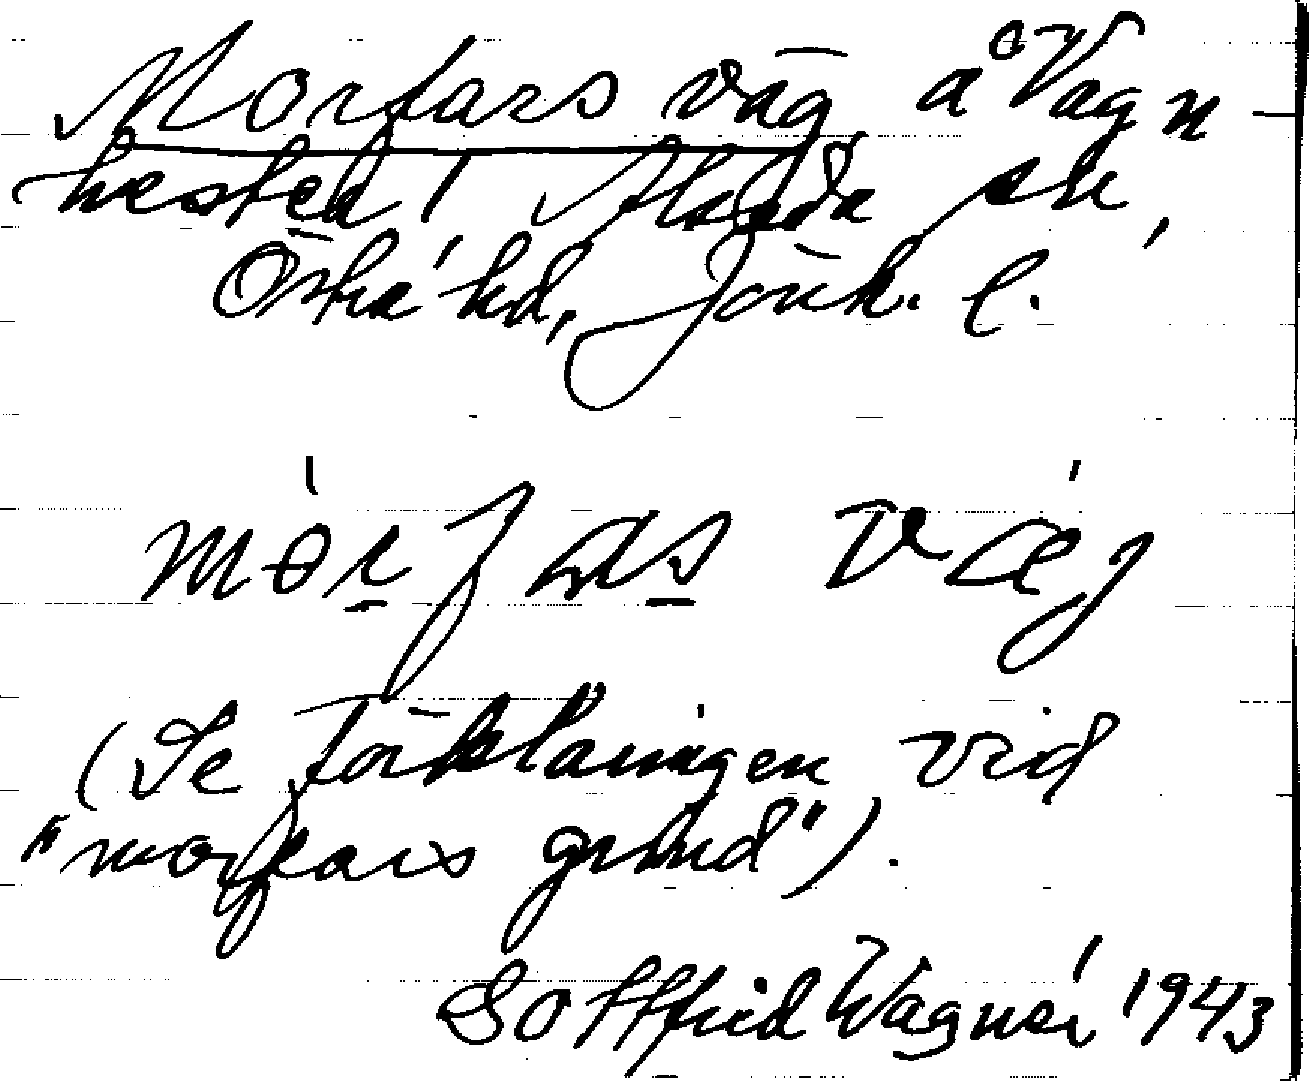 Morfars väg å Vagn
hester i Alseda sn,
Östra hd, Jönk. l.
mòrfas väj
(Se förklaringen vid
"morfars grind").
Gottfrid Wagnér 1943